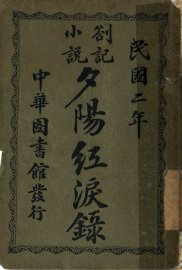 民國二年
劄記小說
夕陽紅淚錄
中華圖書館發行